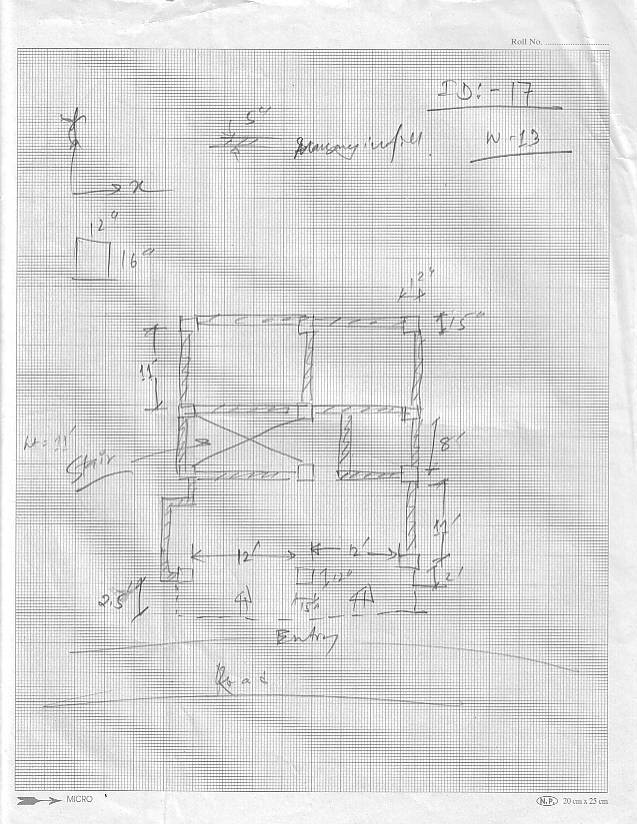 Roll No.
ID:-17
5"
Masonry infill.
W-13
x
12"
16"
12"
15"
11'
ht = 11'
8'
Stair
11'
12'
12'
12"
2'
2.5'
15"
Entry
Road
MICRO
N.P. 20 cm x 25 cm